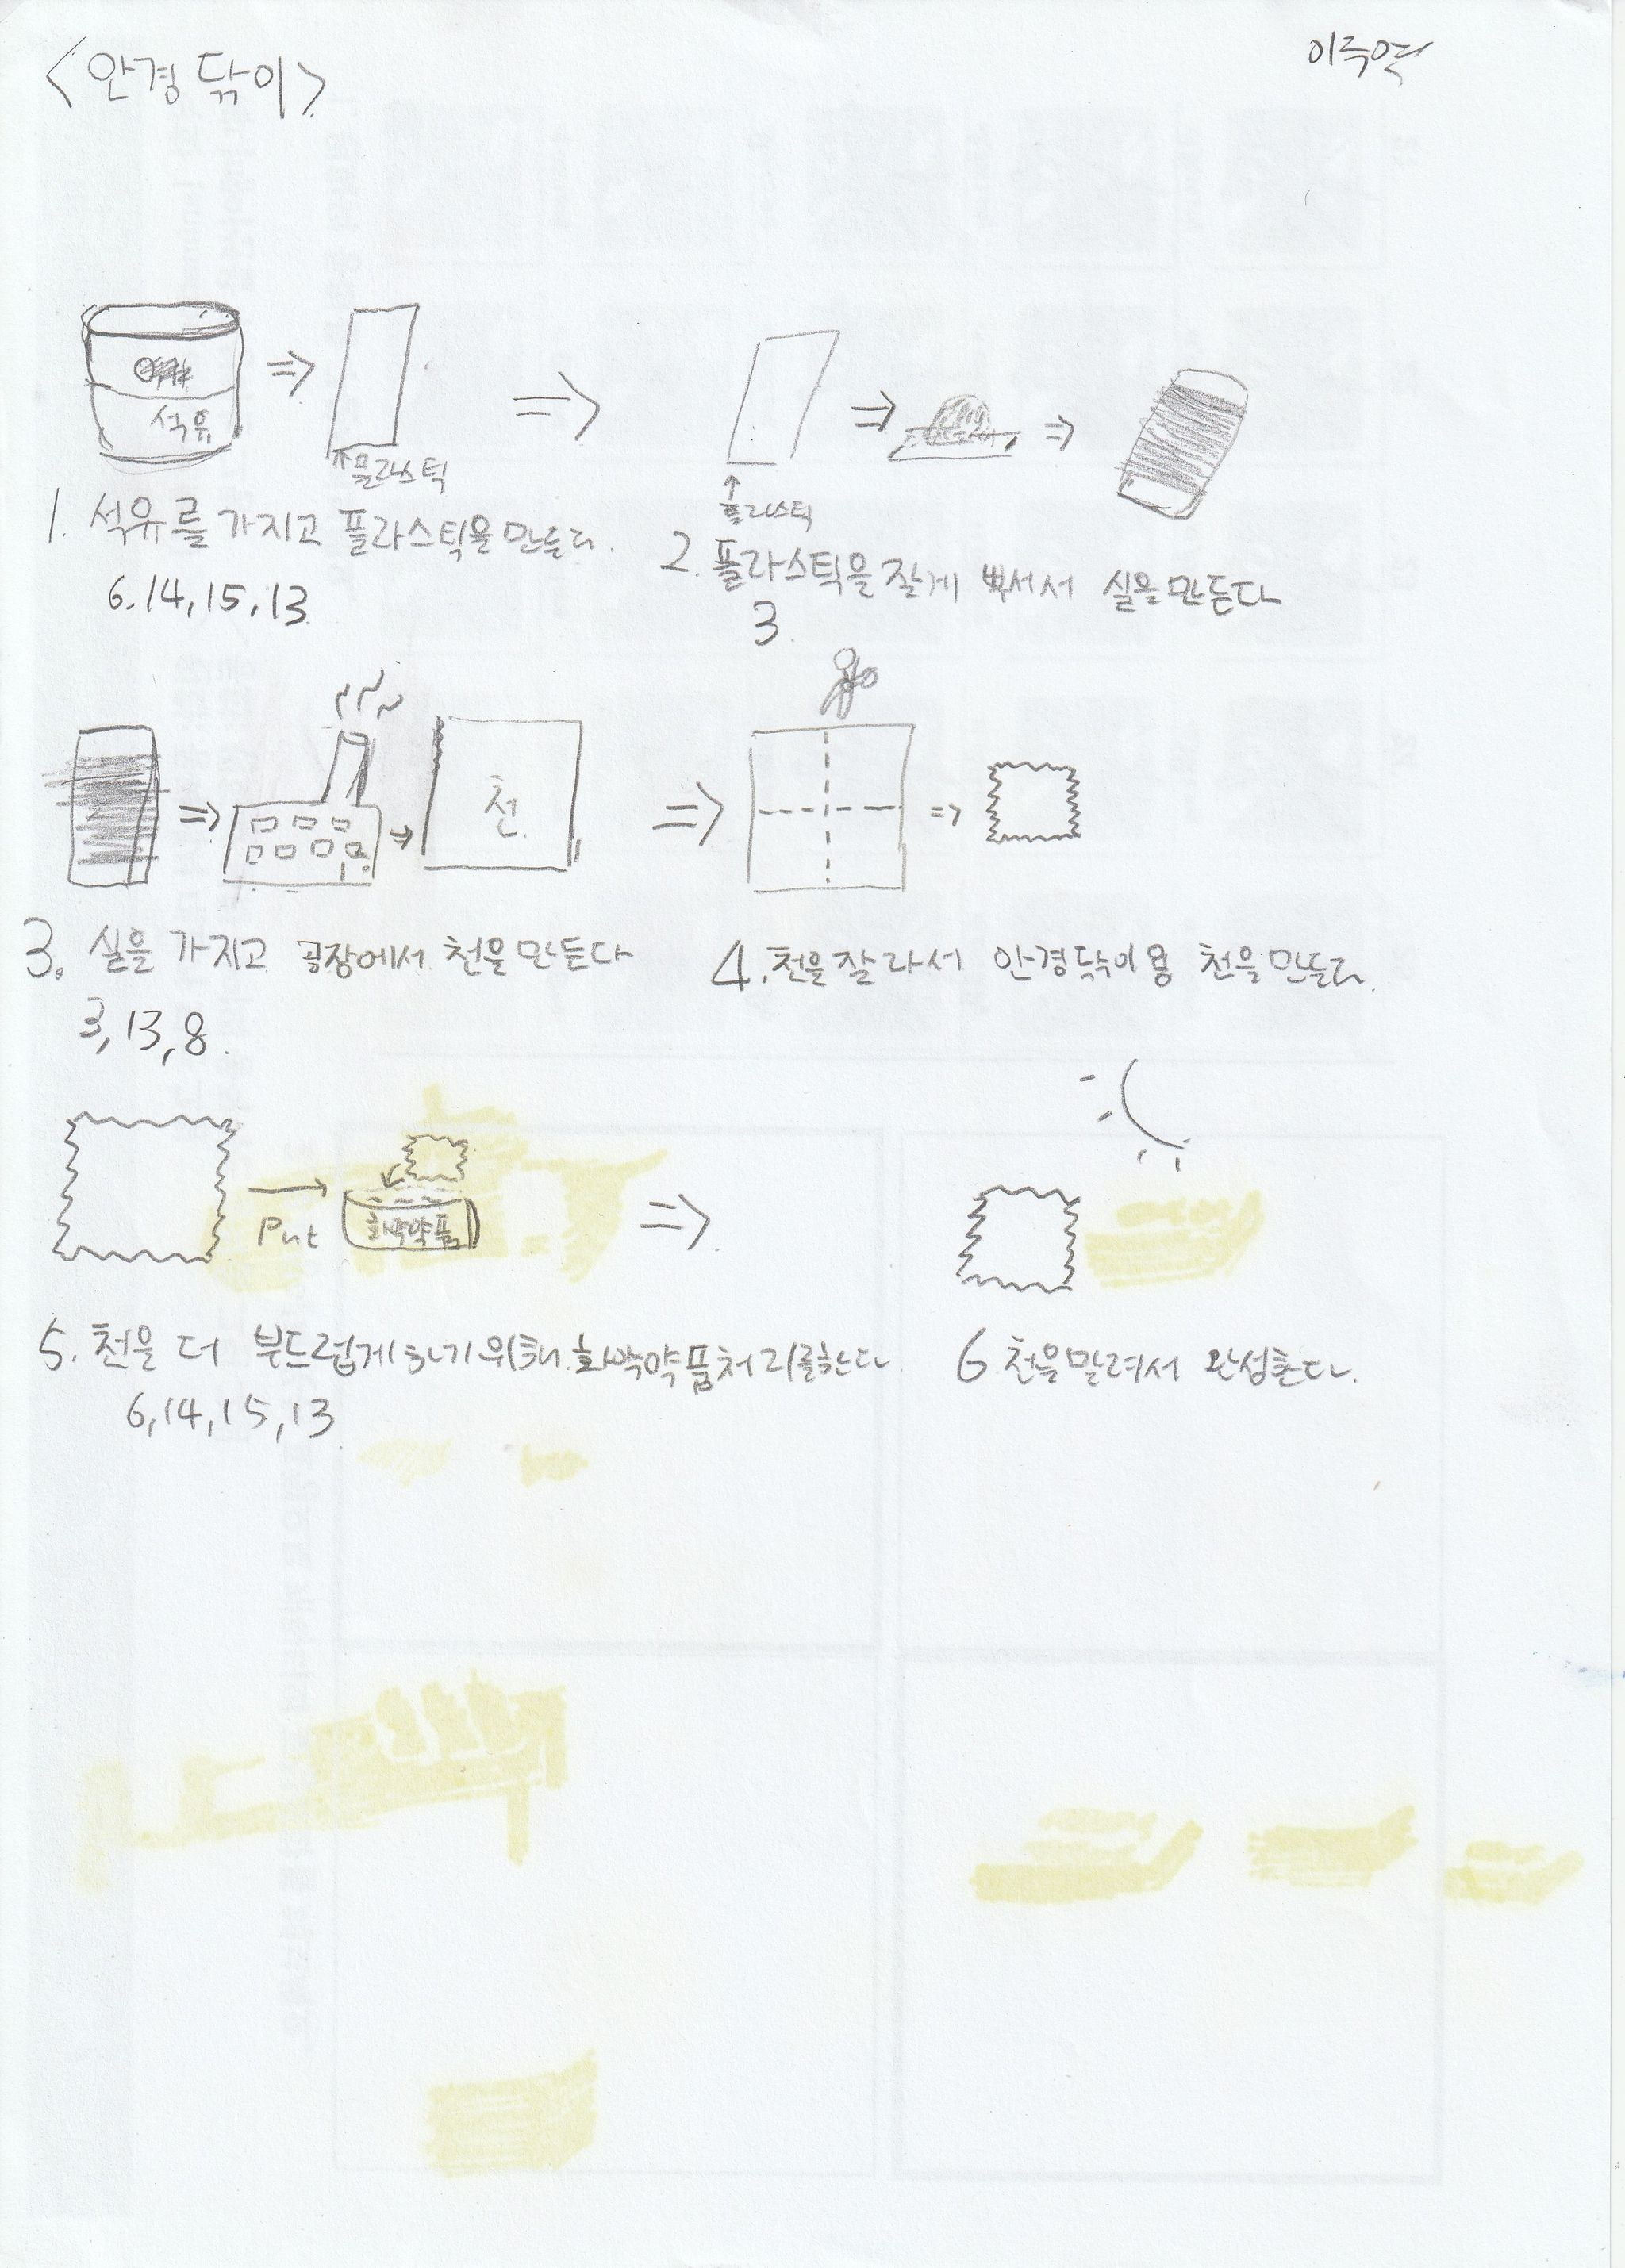 <안경 닦이>
이주연
석유
플라스틱
플라스틱
1. 석유를 가지고 플라스틱을 만든다.
6.14,15,13
2. 플라스틱을 잘게 뿌서서 실을 만든다
3.
천
3. 실을 가지고 공장에서 천을 만든다
3,13,8.
4. 천을 잘라서 안경닦이용 천을 만든다.
Put
화학약품
5. 천을 더 부드럽게 하기 위해 화학약품처리를한다.
6,14,15,13
6 천을말려서 완성한다.